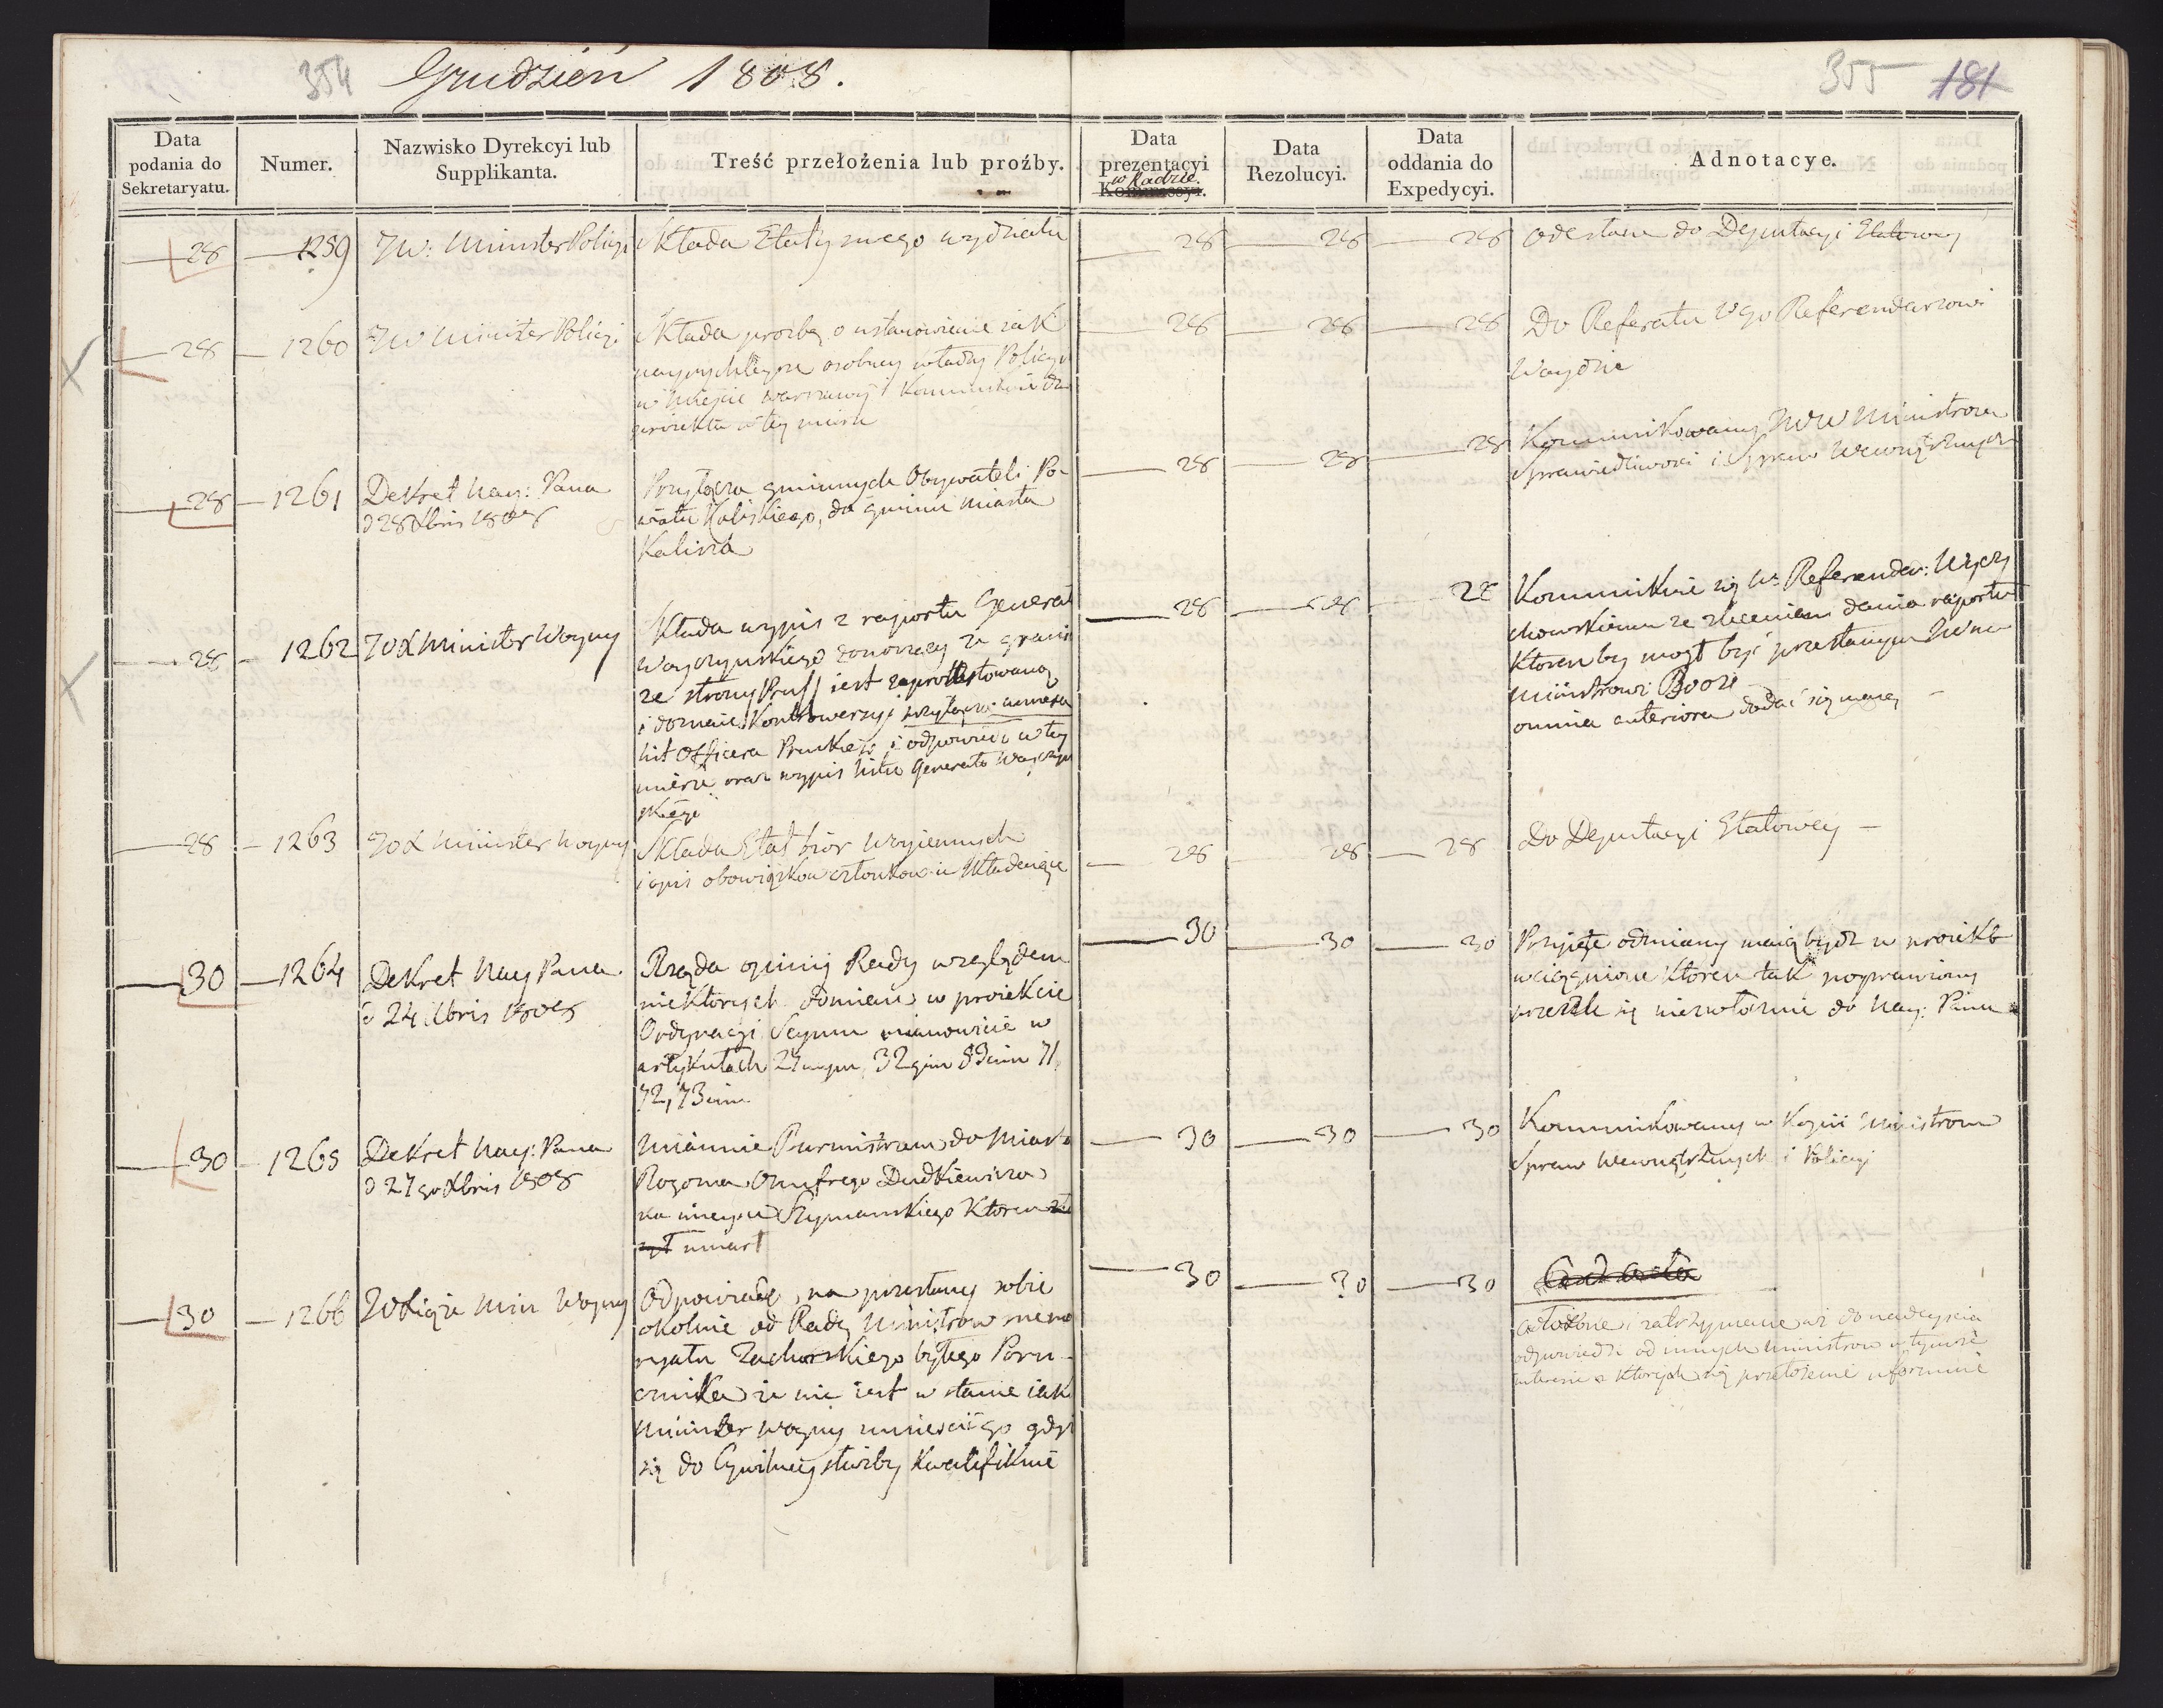 354 Grudzień 1808.
355 181
Data podania do Sekretaryatu.
Numer.
Nazwisko Dyrekcyi lub Supplikanta.
Treść przełożenia lub proźby.
Data prezentacyi w Radzie Kommissyi.
Data Rezolucyi.
Data oddania do Expedycyi.
Adnotacye.
28 1259 JW: Minister Policyi
Składa Etaty swego wydziału
28 28 28
Odesłane do Deputacyi Etatowey
28 1260 JW Minister Policyi
Składa prozbę o ustanowienie iak
nayprychleysze osobney władzy Policyi
w mieście Warszawy i
proiektu w tey mierze
28 28 28
Do Referatu Wgo Referendarzowi
Woydzie
28 1261 Dekret Nay: Pana
d 28 Xbris 1808
Przyłącza gminnych Obywateli Po-
wiatu Kaliskiego, do gminu miasta
Kalisza
28 28 28
Kommunikowany JWW Ministrom
Sprawiedliwości i Spraw Wewnętrznych
28 1262 JOX Minister Woyny
Składa wypis z raportu Generała
Woyczyńskiego donoszący że granica
ze strony Pruss iest zaprotestowaną
i doznaie Kontrowersyi przyłącza
list Officera Pruskiego i odpowiedź w tey
mierze oraz wypis listu Generała Woyczyń
skiego
28 28 28
Kommunikuie się W Referendar: Wyczy
chowskiemu ze zleceniem dania raportu
któren by mógł być przesłanym JW
Ministrowi Boze
omnia anteriora dodać się maią
28 1263 JOX Minister Woyny
Składa Etat biór Woyiennych
i opis obowiązków członków ie składaiące
28 28 28
Do Deputacyi Etatowey
30 1264 Dekret Nay Pana
d 24 Xbris 1808
Rząda opinii Rady względem
niektorych odmian w proiekcie
Ordynacyi Seymu mianowicie w
artykułach 27 32 71,
72, 73
30 30 30
Przyięte odmiany maią bydź w proiekt
wciągnione któren tak poprawiony
przeszle się niezwłocznie do Nay: Pana
30 1265 Dekret Nay: Pana
d 27go Xbris 1808
Mianuie Burmistrzem do Miasta
Rogozna Onufrego Dudkiewicza
na mieysce Szymanskiego któren
umarł
30 30 30
Kommunikowany w Kopii Ministrom
Spraw Wewnętrznych i Policyi
30 1266 JO Xiąże Min Woyny
Odpowiada na przesłany sobie
okolnie od Rady Ministrow memo
ryału Zachorskiego byłego Poru-
cznika że nie iest w stanie iak
Minister Woyny umieścić go gdyż
się do Cywilney służby kwalifikuie
30 30 30
odłożone i zatrzymane aż do nadeyścia
odpowiedzi od innych Ministrow w tymże
interesie z ktorych się przełożenie uformuie